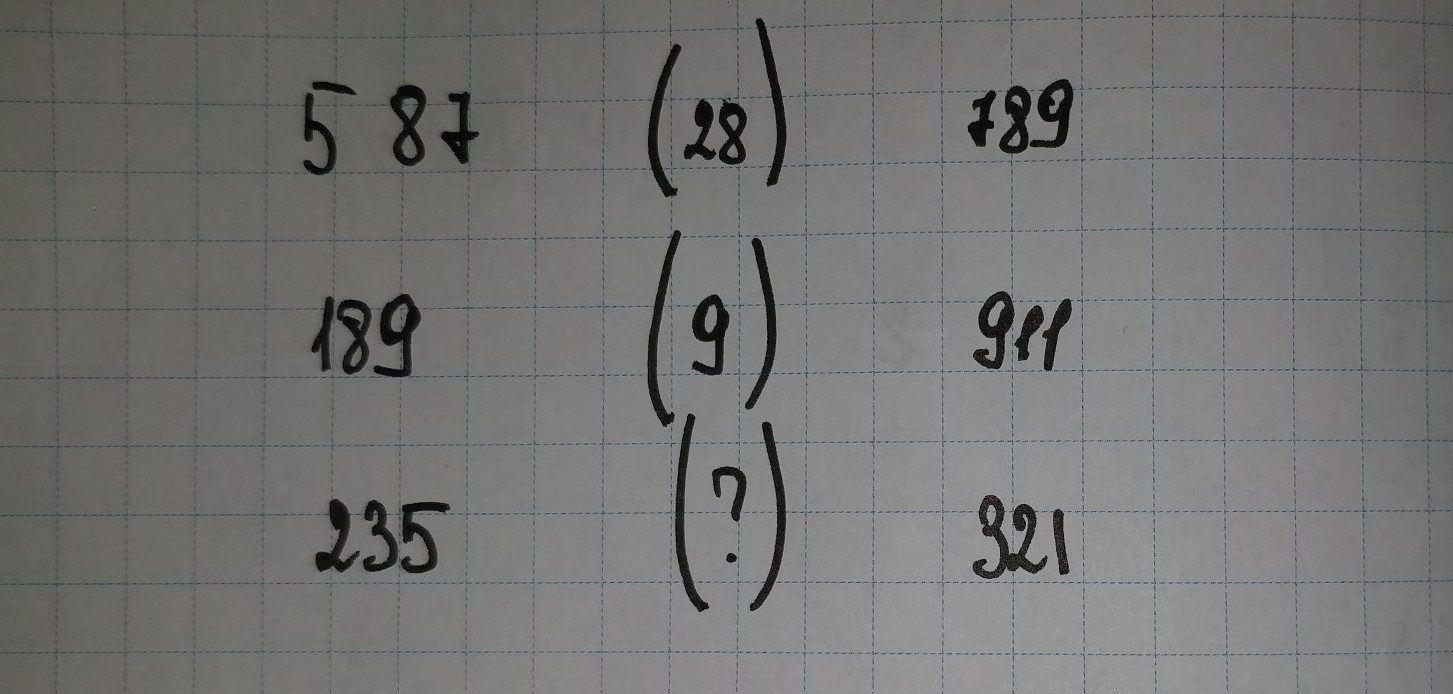 587 (28) 789
189 (9) 911
235 (?) 321